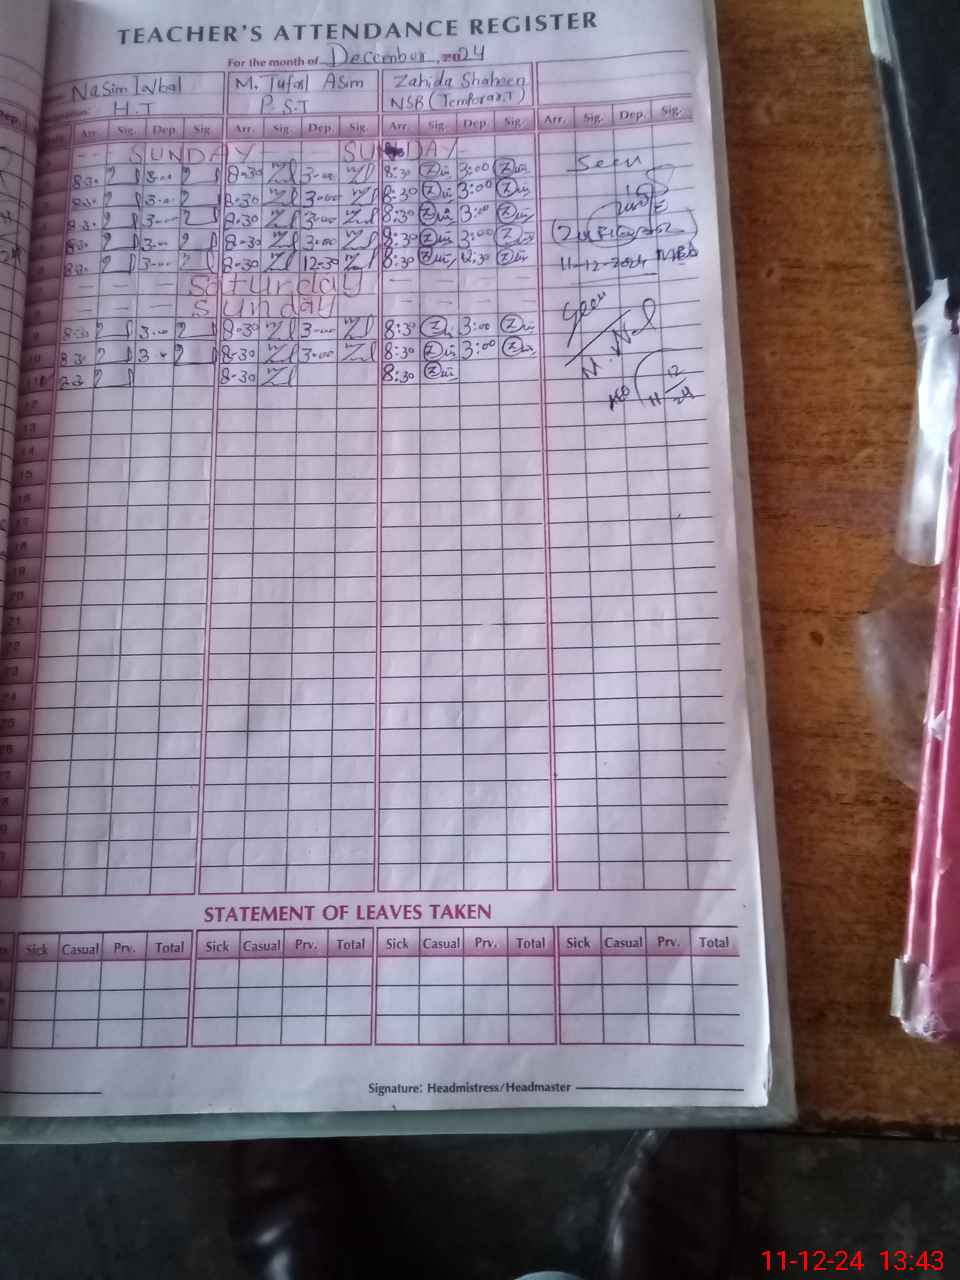 TEACHER'S ATTENDANCE REGISTER
For the month of December, 2024
Nasim Iqbal M. Tufail Asim Zahida Shaheen
H.T P.S.T NSB (Temporary)
Arr. Sig. Dep. Sig. Arr. Sig. Dep. Sig. Arr. Sig. Dep. Sig. Arr. Sig. Dep. Sig.
SUNDAY SUNDAY Seen
8:30 3-00 8-30 3-00 8:30 3:00
8:30 3-00 8-30 3-00 8:30 3:00
8:30 3-00 8-30 3-00 8:30 3:00
8:30 3-00 8-30 3:00 8:30 3:00
8:30 3-00 8-30 12-30 8:30 12:30 11-12-2024
Saturday
Sunday
Seen
9 8:30 3-00 8-30 3-00 8:30 3:00
10 8:30 3-00 8-30 3-00 8:30 3:00
11 8:30 8-30 8:30
11 12 24
12
13
14
15
16
17
18
19
20
21
22
23
24
25
26
27
STATEMENT OF LEAVES TAKEN
Sick Casual Prv. Total Sick Casual Prv. Total Sick Casual Prv. Total Sick Casual Prv. Total
Signature: Headmistress/Headmaster
11-12-24 13:43